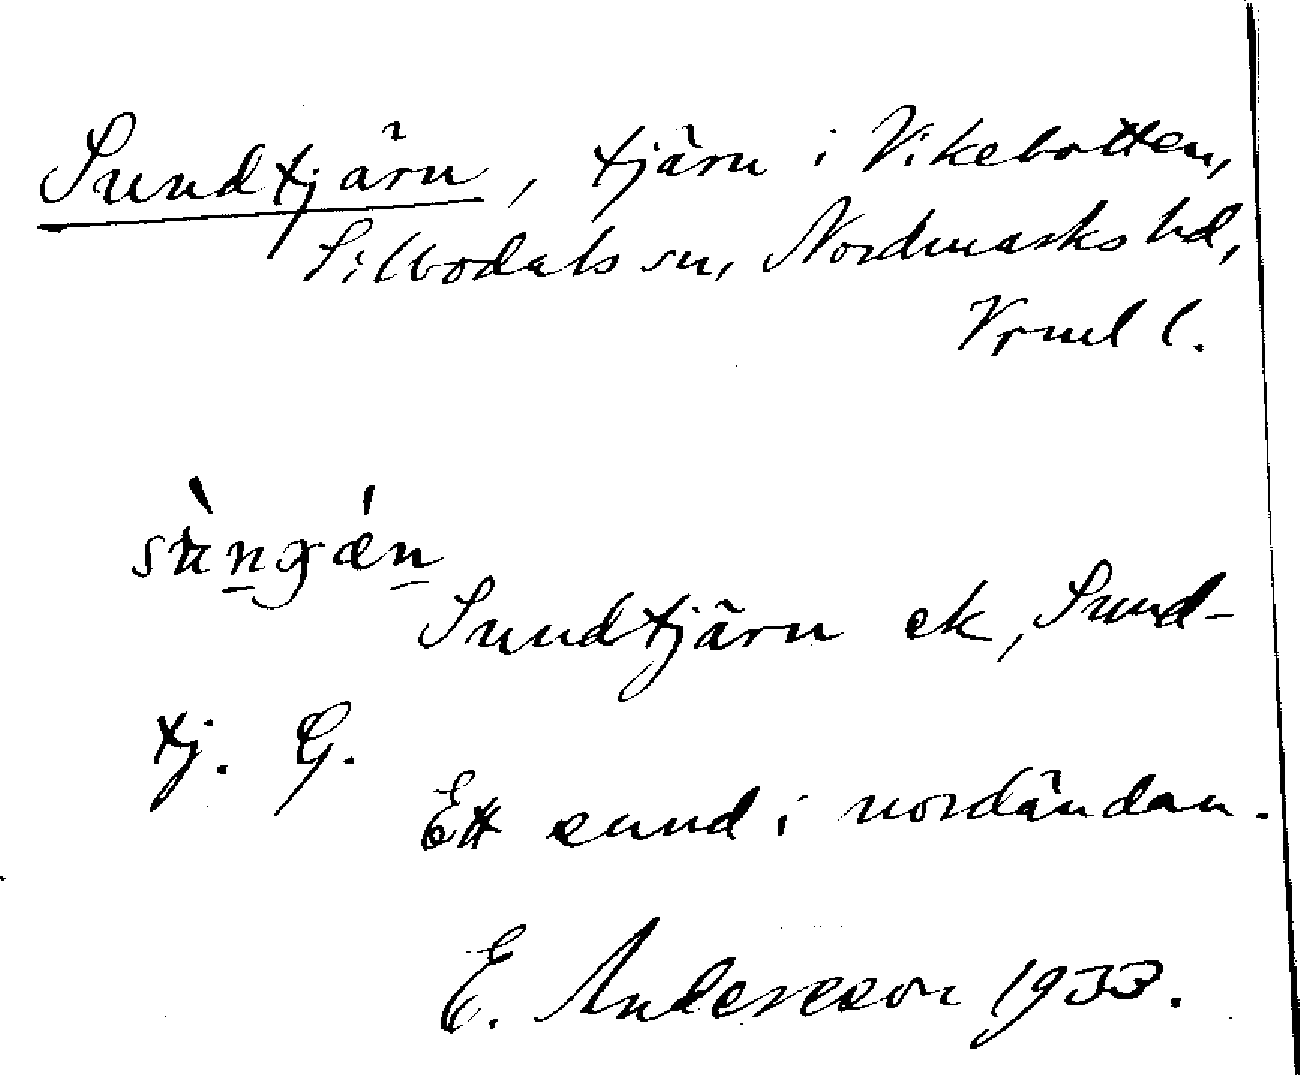 Sundtjärn, tjärn i Vikebotten,
Silbodals sn, Nordmarks hd,
Vrml l.
Sundtjärn ek, Sund-
tj. G.
Ett sund i nordändan.
E. Andersson 1933.